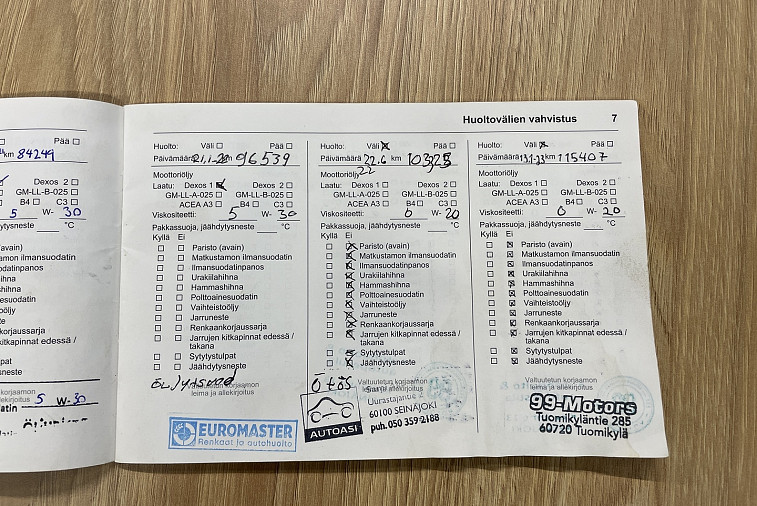 Huoltovälien vahvistus 7
Pää
km 84249
Dexos 2
GM-LL-B-025
C3
5 W- 30
°C
avain)
ilmansuodatin
odatinpanos
hihna
nesuodatin
öljy
korjaussarja
kitkapinnat edessä /
tulpat
5 W-30
Huolto: Väli Pää
Päivämäärä 21,1-22 km 96539
Moottoriöljy
Laatu: Dexos 1 Dexos 2
GM-LL-A-025 GM-LL-B-025
ACEA A3 B4 C3
Viskositeetti: 5 W- 30
Pakkassuoja, jäähdytysneste °C
Kyllä Ei
Paristo (avain)
Matkustamon ilmansuodatin
Ilmansuodatinpanos
Urakiilahihna
Hammashihna
Polttoainesuodatin
Vaihteistoöljy
Jarruneste
Renkaankorjaussarja
Jarrujen kitkapinnat edessä /
takana
Sytytystulpat
Jäähdytysneste
Valtuutetun korjaamon
leima ja allekirjoitus
EUROMASTER
Renkaat ja autohuolto
Huolto: Väli Pää
Päivämäärä 22.6 22 km 103325
Moottoriöljy
Laatu: Dexos 1 Dexos 2
GM-LL-A-025 GM-LL-B-025
ACEA A3 B4 C3
Viskositeetti: 0 W- 20
Pakkassuoja, jäähdytysneste °C
Kyllä Ei
Paristo (avain)
Matkustamon ilmansuodatin
Ilmansuodatinpanos
Urakiilahihna
Hammashihna
Polttoainesuodatin
Vaihteistoöljy
Jarruneste
Renkaankorjaussarja
Jarrujen kitkapinnat edessä /
takana
Sytytystulpat
Jäähdytysneste
Valtuutetun korjaamon
leima ja allekirjoitus
AUTOASI
Uurastajantie 2
60100 SEINÄJOKI
puh. 050 359 2188
Huolto: Väli Pää
Päivämäärä 13.1-23 km 115407
Moottoriöljy
Laatu: Dexos 1 Dexos 2
GM-LL-A-025 GM-LL-B-025
ACEA A3 B4 C3
Viskositeetti: 0 W- 20
Pakkassuoja, jäähdytysneste °C
Kyllä Ei
Paristo (avain)
Matkustamon ilmansuodatin
Ilmansuodatinpanos
Urakiilahihna
Hammashihna
Polttoainesuodatin
Vaihteistoöljy
Jarruneste
Renkaankorjaussarja
Jarrujen kitkapinnat edessä /
takana
Sytytystulpat
Jäähdytysneste
Valtuutetun korjaamon
leima ja allekirjoitus
99-Motors
Tuomikyläntie 285
60720 Tuomikylä